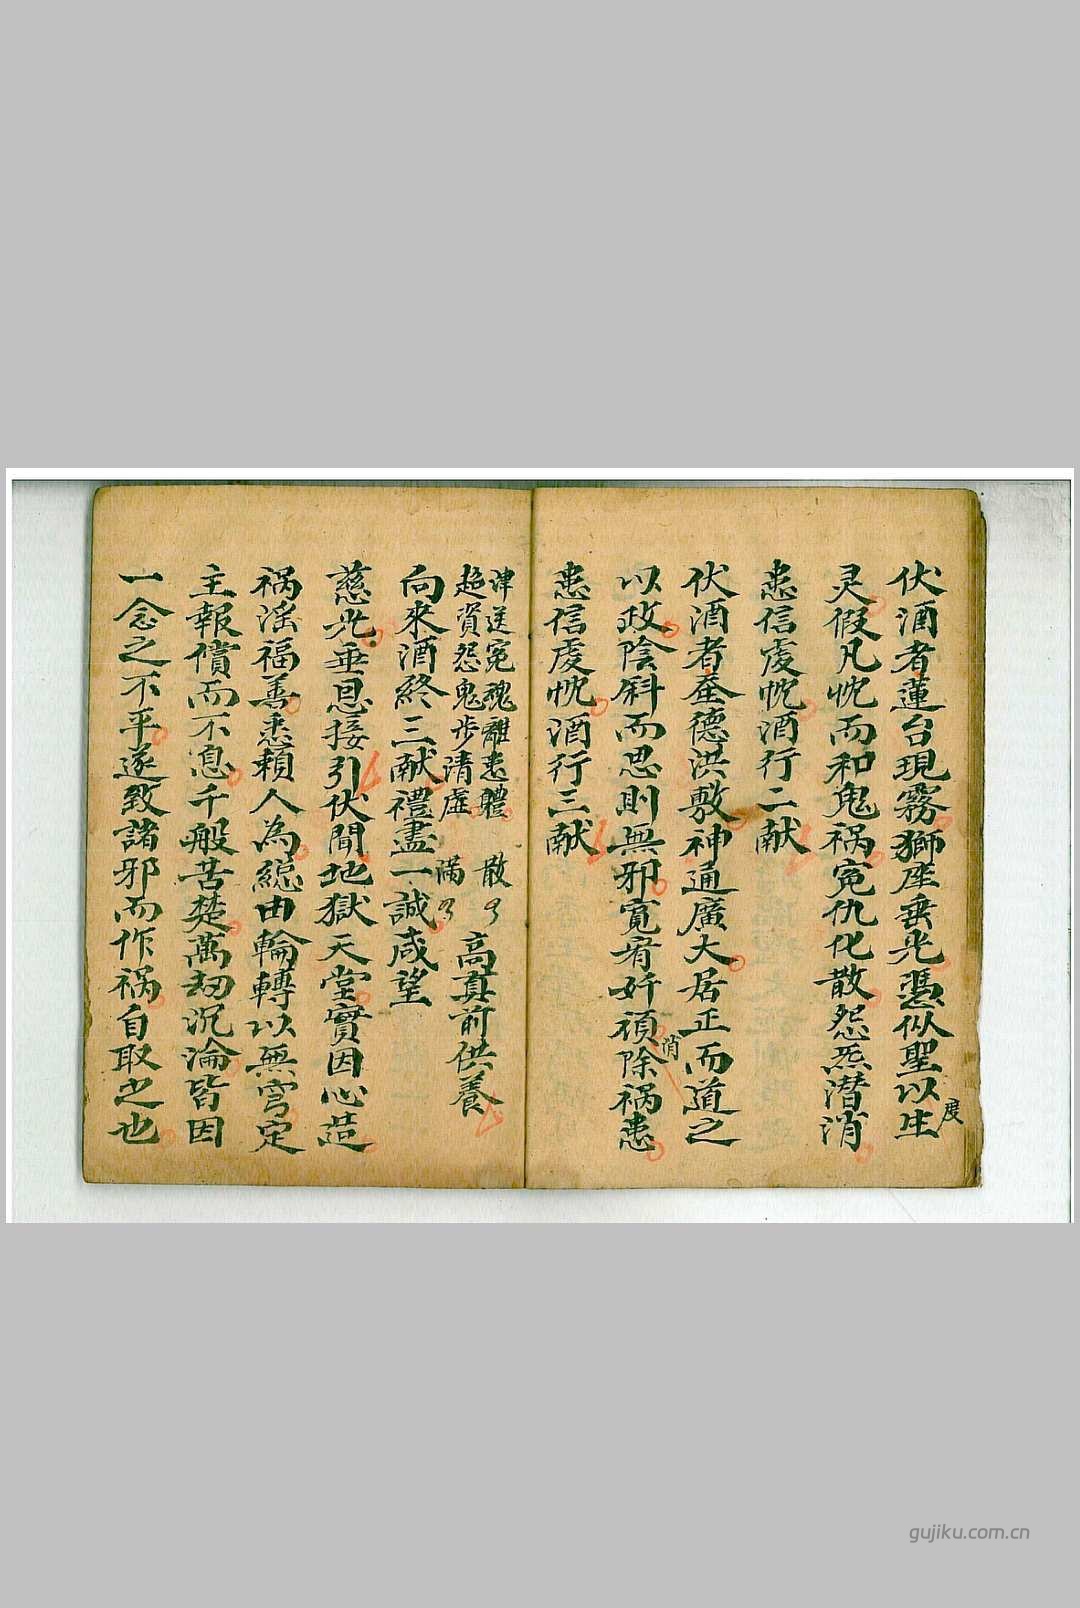 伏酒者蓮台現霧獅座垂光憑似聖以生
度
灵假凡忱而和鬼祸冤仇化散怨炁潜消
患信虔忱酒行二献
伏酒者至德洪敷神通廣大居正而道之
以政陰斜而思則無邪寬宥奸頑除祸患
消
患信虔忱酒行三献
津送冤魂離患體 散
超資怨鬼步清虛 满
高真前供養
向來酒終三献禮盡一誠咸望
慈光垂恩接引伏聞地獄天堂實因心造
祸淫福善悉賴人為總由輪轉以無穹定
主報償而不息千般苦楚萬劫沉淪皆因
一念之不平遂致諸邪而作祸自取之也
gujiku.com.cn